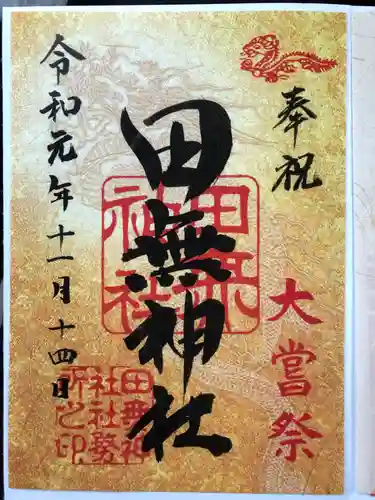 奉祝
大嘗祭
田無神社
田無神社
令和元年十一月十四日
田無神
社社務
所之印